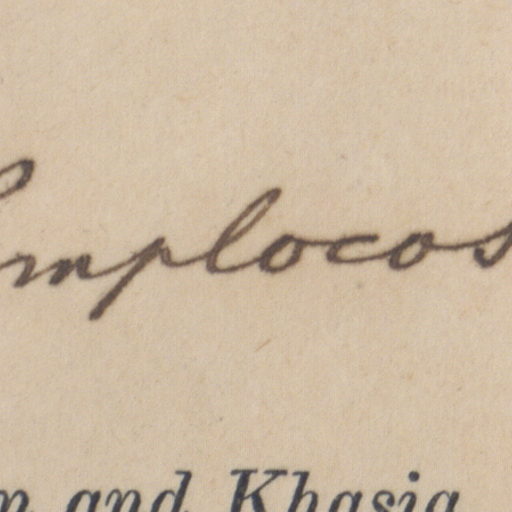 Symplocos
and Khasia